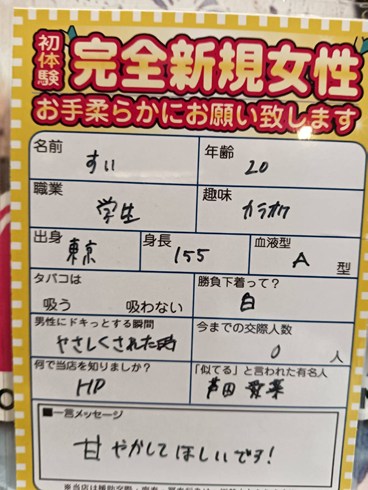 初体験
完全新規女性
お手柔らかにお願い致します
名前 すい 年齢 20
職業 学生 趣味 カラオケ
出身 東京 身長 155 血液型 A 型
タバコは 吸う 吸わない 勝負下着って? 白
男性にドキっとする瞬間 やさしくされた時 今までの交際人数 0 人
何で当店を知りましたか? HP 「似てる」と言われた有名人 芦田愛菜
■一言メッセージ
甘やかしてほしいです!